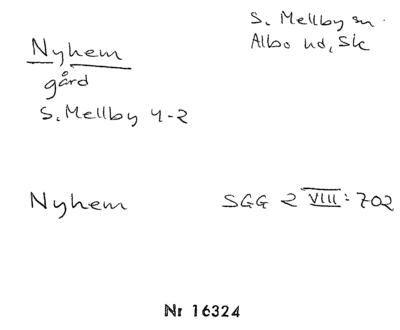 Nyhem
gård
S. Mellby 4-2
S. Mellby sn.
Albo hd, Sk
Nyhem SGG 2 VIII: 702
Nr 16324